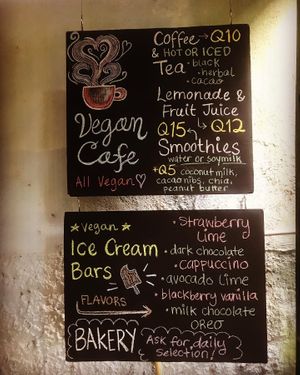 Coffee → Q10
& HOT OR ICED
Tea • black
• herbal
• cacao
Vegan
Cafe
All Vegan
Lemonade &
Fruit Juice
Q15 Q12
Smoothies
water or soymilk
+Q5 coconut milk,
cacao nibs, chia,
peanut butter
★ vegan ★
Ice Cream
Bars
FLAVORS
• Strawberry
Lime
• dark chocolate
• cappuccino
• avocado lime
• blackberry vanilla
• milk chocolate
oreo
BAKERY
Ask for daily
selection!